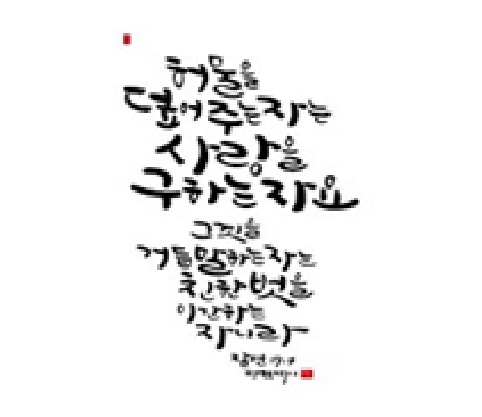 허물을
덮어주는자는
사랑을
구하는자요
그것을
거듭말하는자는
친한벗을
이간하는
자니라
잠언 17:9